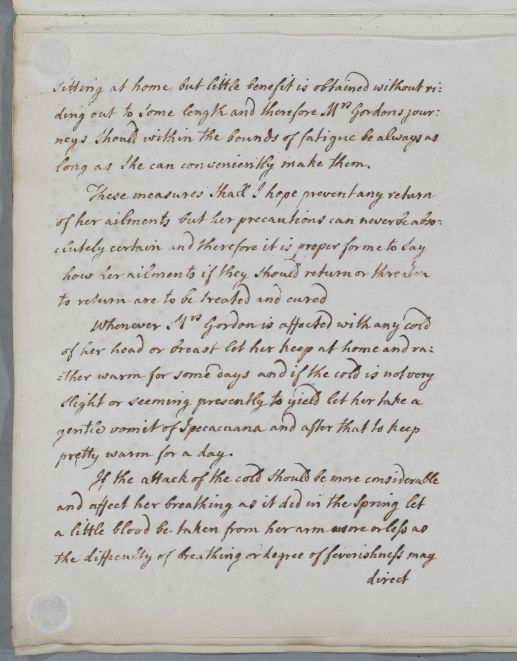 sitting at home but little benefit is obtained without ri:
ding out to some length and therefore Mrs Gordons jour:
neys should within the bounds of fatigue be always as
long as she can conveniently make them.
These measures shall I hope prevent any return
of her ailments but her precautions can never be abso:
:lutely certain and therefore it is proper for me to say
how her ailments if they should return or threaten
to return are to be treated and cured
Whenever Mrs Gordon is affected with any cold
of her head or breast let her keep at home and ra:
:ther warm for some days and if the cold is not very
slight or seeming presently to yield let her take a
gentle vomit of Ipecacuana and after that to keep
pretty warm for a day.
If the attack of the cold should be more considerable
and affect her breathing as it did in the Spring let
a little blood be taken from her arm more or less as
the difficulty of breathing or degree of feverishness may
direct